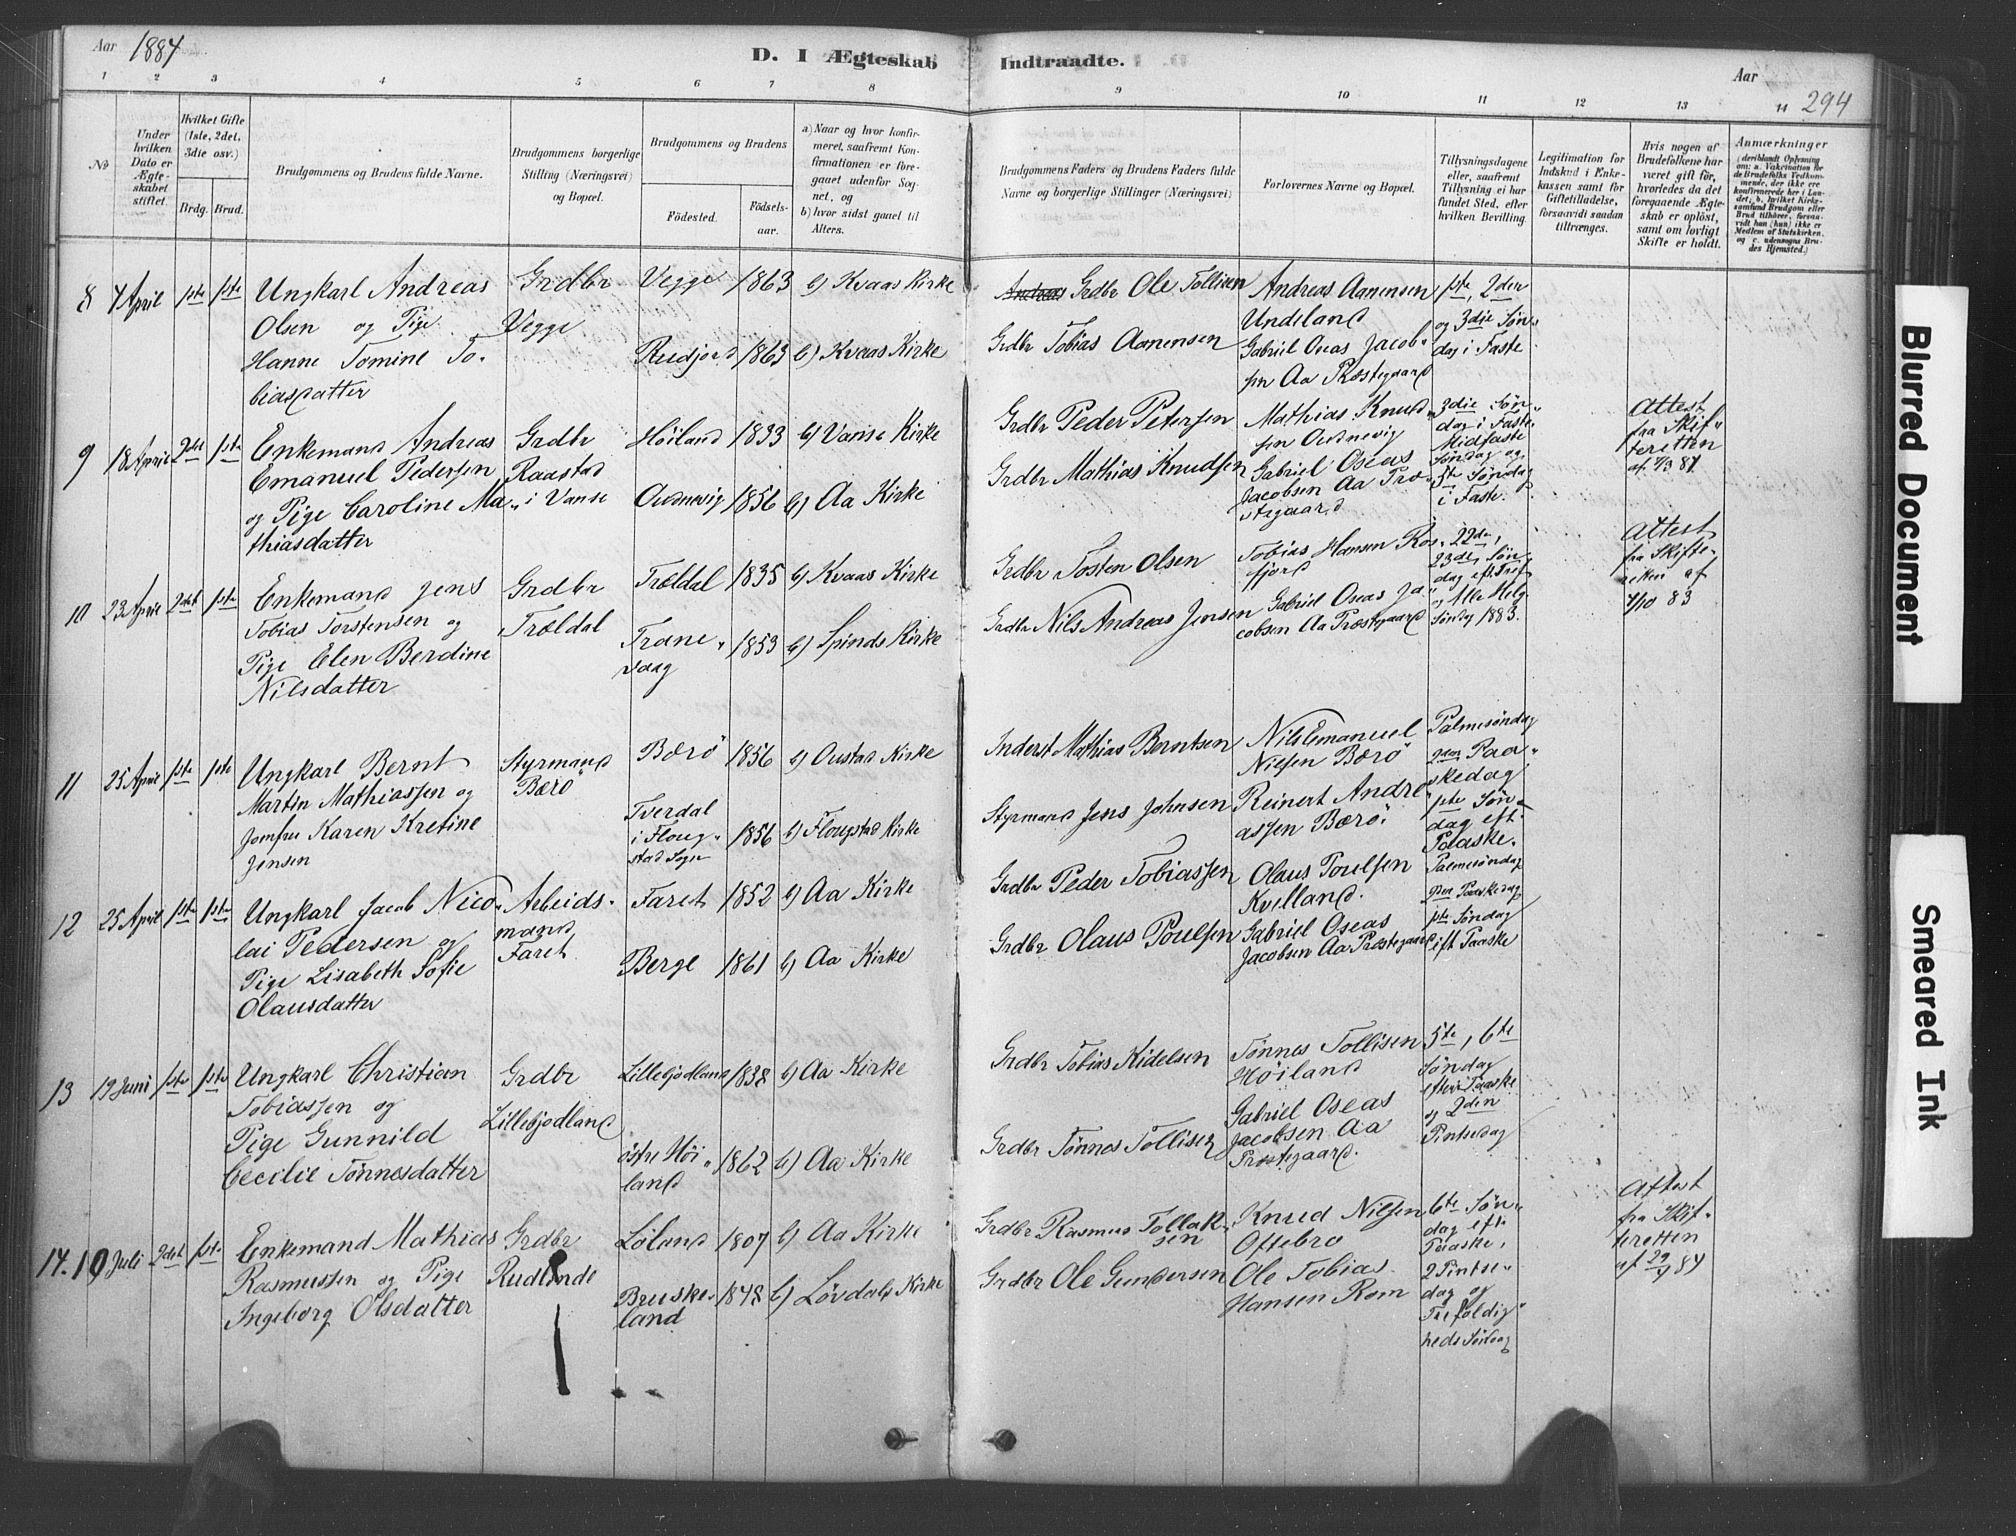 Aar 1884
D. I Ægteskab Indtraadte.
Aar
294
1 2 3 4 5 6 7 8 9 10 11 12 13 14
No
Under hvilken Dato er Ægteskabet stiftet.
Hvilket Gifte (1ste, 2det, 3die osv.)
Brdg. Brud.
Brudgommens og Brudens fulde Navne.
Brudgommens borgerlige Stilling (Næringsvei) og Bopæl.
Brudgommens og Brudens
Födested.
Födselsaar.
a) Naar og hvor konfirmeret, saafremt Konfirmationen er foregaaet udenfor Sognet, og
b) hvor sidst gaaet til Alters.
Brudgommens Faders og Brudens Faders fulde Navne og borgerlige Stillinger (Næringsvei)
Forlovernes Navne og Bopæl.
Tillysningsdagene eller, saafremt Tillysning ei har fundet Sted, efter hvilken Bevilling.
Legitimation for Indskud i Enkekassen samt for Giftetilladelse, forsaavidt saadan tiltrænges.
Hvis nogen af Brudefolkene har været gift för, hvorledes da det foregaaende Ægteskab er oplöst, samt om lovligt Skifte er holdt.
Anmærkninger
8 7 April 1ste 1ste
Ungkarl Andreas
Olsen og Pige
Hanne Tomine To-
biasdatter
Grdbr
Vegge
Vegge 1863 b) Kvaas Kirke
Rudjord 1863 b) Kvaas Kirke
Andreas Grdbr Ole Tollisen
Grdbr Tobias Aanensen
Andreas Aanensen
Undeland
Gabriel Oseas Jacob-
sen Aa Præstegaard
1ste, 2den
og 3die Søn-
dag i Faste
9 18 April 2det 1ste
Enkemand Andreas
Emanuel Pedersen
og Pige Caroline Ma-
thiasdatter
Grdbr
Raastad
i Vanse
Höiland 1833 b) Vanse Kirke
Audnevig 1856 b) Aa Kirke
Grdbr Peder Petersen
Grdbr Mathias Knudsen
Mathias Knud-
sen Audnevig
Gabriel Oseas
Jacobsen Aa Præ-
stegaard
3die Søn-
dag i Faste
Midfaste
Søndag og
5te Søndag
i Faste.
Attest
fra Skif-
teretten
10 23 April 2det 1ste
Enkemand Jens
Tobias Torstensen og
Pige Elen Berdine
Nilsdatter
Grdbr
Trældal
Trældal 1835 b) Kvaas Kirke
Trane-
vaag 1853 b) Spinds Kirke
Grdbr Tosten Olsen
Grdbr Nils Andreas Jensen
Tobias Hansen Ros-
fjord
Gabriel Oseas Ja-
cobsen Aa Præstegaard
22de,
23de Søn-
dag eft. Tref
og Alle Helg
Søndag 1883.
Attest
fra Skifte-
retten af
4/10 83
11 25 April 1ste 1ste
Ungkarl Bernt
Martin Mathiassen og
Jomfru Karen Kristine
Jensen
Styrmand
Bærö
Bærö 1856 b) Oustad Kirke
Tverdal
i Floug-
stad Sogn 1856 b) Flougstad Kirke
Inderst Mathias Berntsen
Styrmand Jens Johnsen
Nils Emanuel
Nilsen Bærö
Reinert Andre-
assen Bærö.
Palmesöndag
2den Paa-
skedag
1ste Søn-
dag eft.
Paaske.
12 25 April 1ste 1ste
Ungkarl Jacob Nico-
lai Pedersen og
Pige Lisabeth Sofie
Olausdatter
Arbeids-
mand,
Faret
Faret 1852 b) Aa Kirke
Berge 1861 b) Aa Kirke
Grdbr Peder Tobiassen
Grdbr Olaus Poulsen
Olaus Poulsen
Kvelland.
Gabriel Oseas
Jacobsen Aa Præstegaard
Palmesöndag
2den Paaskedag
1ste Søndag
eft Paaske
13 19 Juni 1ste 1ste
Ungkarl Christian
Tobiassen og
Pige Gunnild
Cecilie Tønnesdatter
Grdbr
Lillebjodland
Lillebjodland 1838 b) Aa Kirke
östre Höi-
land 1862 b) Aa Kirke
Grdbr Tobias Kidelsen
Grdbr Tønnes Tollisen
Tønnes Tollisen
Höiland
Gabriel Oseas
Jacobsen Aa
Præstegaard.
5te, 6te
Søndag
efter Paaske
og 2den
Pintsedag
14. 10 Juli 2det 1ste
Enkemand Mathias
Rasmussen og Pige
Ingeborg Olsdatter
Grdbr
Rudlande
Löland 1807 b) Aa Kirke
Bruske-
land 1848 b) Løvdals Kirke
Grdbr Rasmus Tollak-
sen
Grdbr Ole Gundersen
Knud Nilsen
Oftebro
Ole Tobias
Hansen Rom
6te Søn-
dag eft.
Paaske,
2 Pintse-
dag og
Trefoldig-
heds Søndag
Attest
fra Skif-
teretten
Blurred Document
Smeared Ink